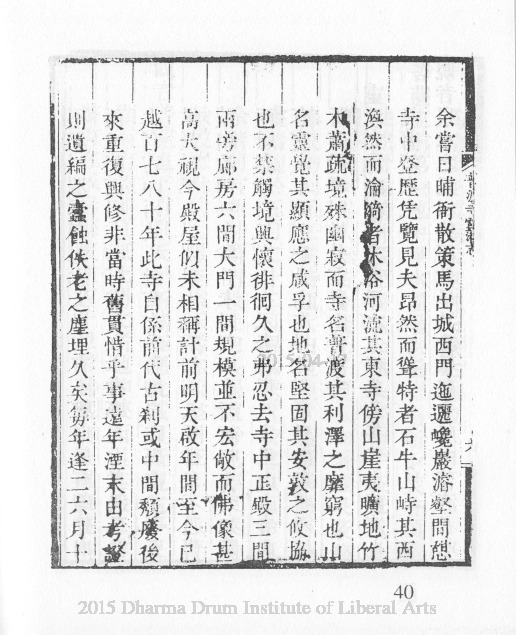 余嘗日晡衙散策馬出城西門迤邐巉巖濬壑間憇
寺中登歷凭覽見夫昂然而聳特者石牛山峙其西
渙然而淪漪者沐浴河流其東寺傍山崖夷曠地竹
木蕭疏境殊幽寂而寺名普渡其利澤之靡窮也山
名靈覺其顯應之咸孚也地名堅固其安敦之攸協
也不禁觸境興懷徘徊久之弗忍去寺中正殿三間
兩旁廊房六間大門一間規模並不宏敞而佛像甚
高大視今殿屋似未相稱計前明天啟年間至今已
越百七八十年此寺自係前代古剎或中間頽廢後
來重復興修非當時舊貫惜乎事遠年湮末由考證
則遺編之蠹蝕佚老之塵埋久矣每年逢二六月十
六
2015-04-
40
2015 Dharma Drum Institute of Liberal Arts